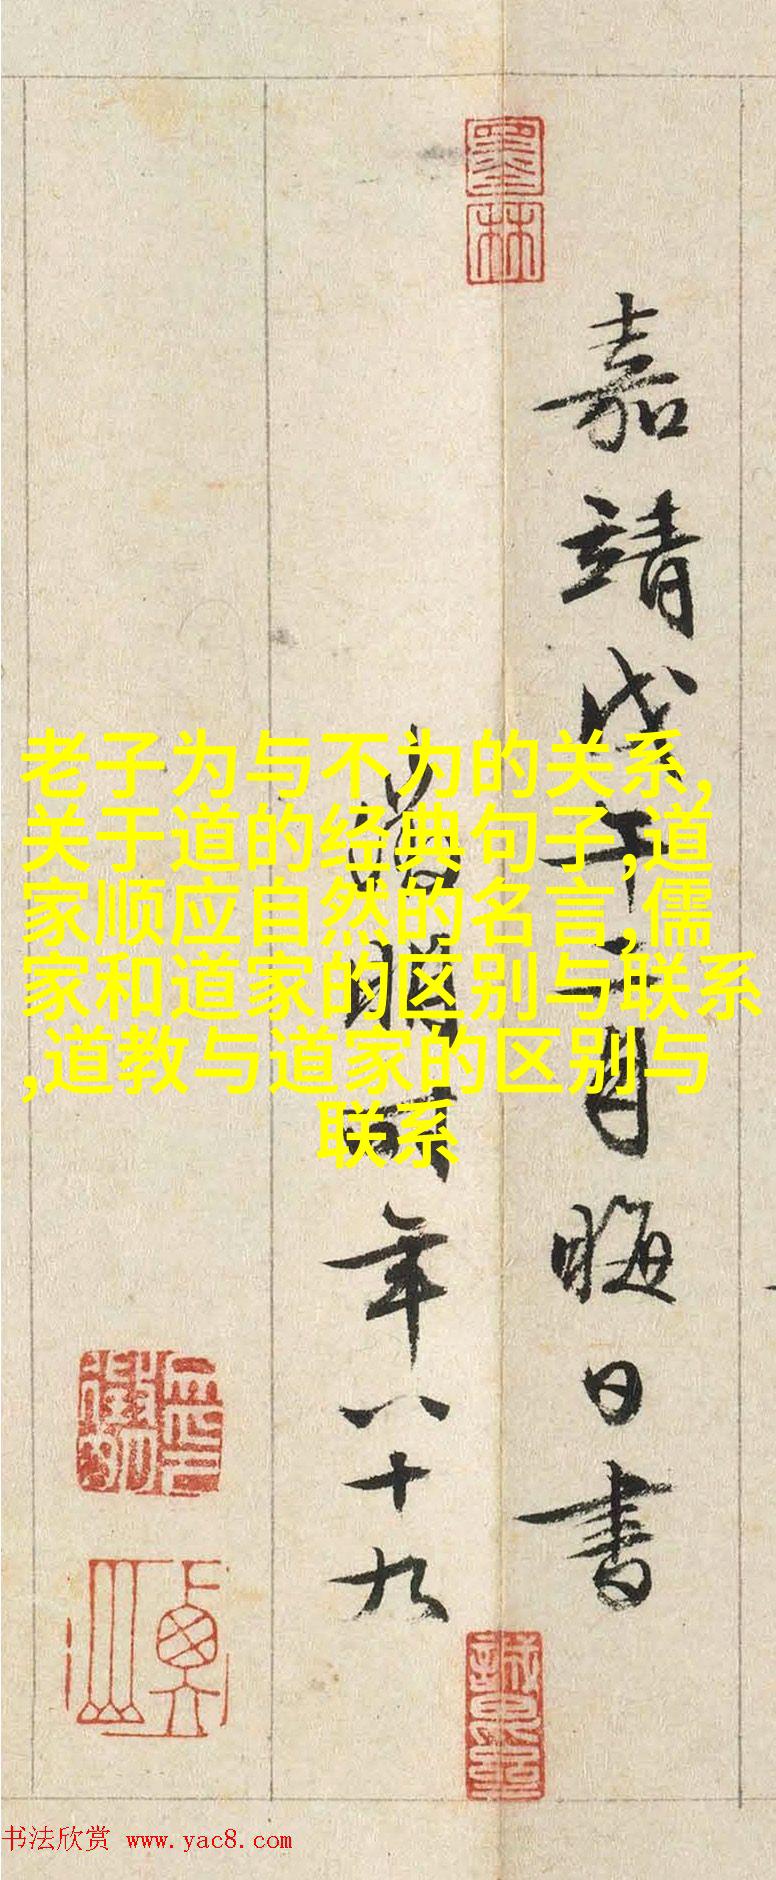 嘉靖戊午二月晦日書
徵明時年八十九
老子为与不为的关系,
关于道的经典句子,道
家顺应自然的名言,儒
家和道家的区别与联系
,道教与道家的区别与
联系
墨林
书法欣赏 www.yac8.com